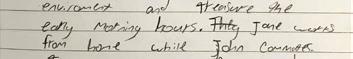 enviroment and treasure the
early morning hours. They Jane works
from home while John commutes